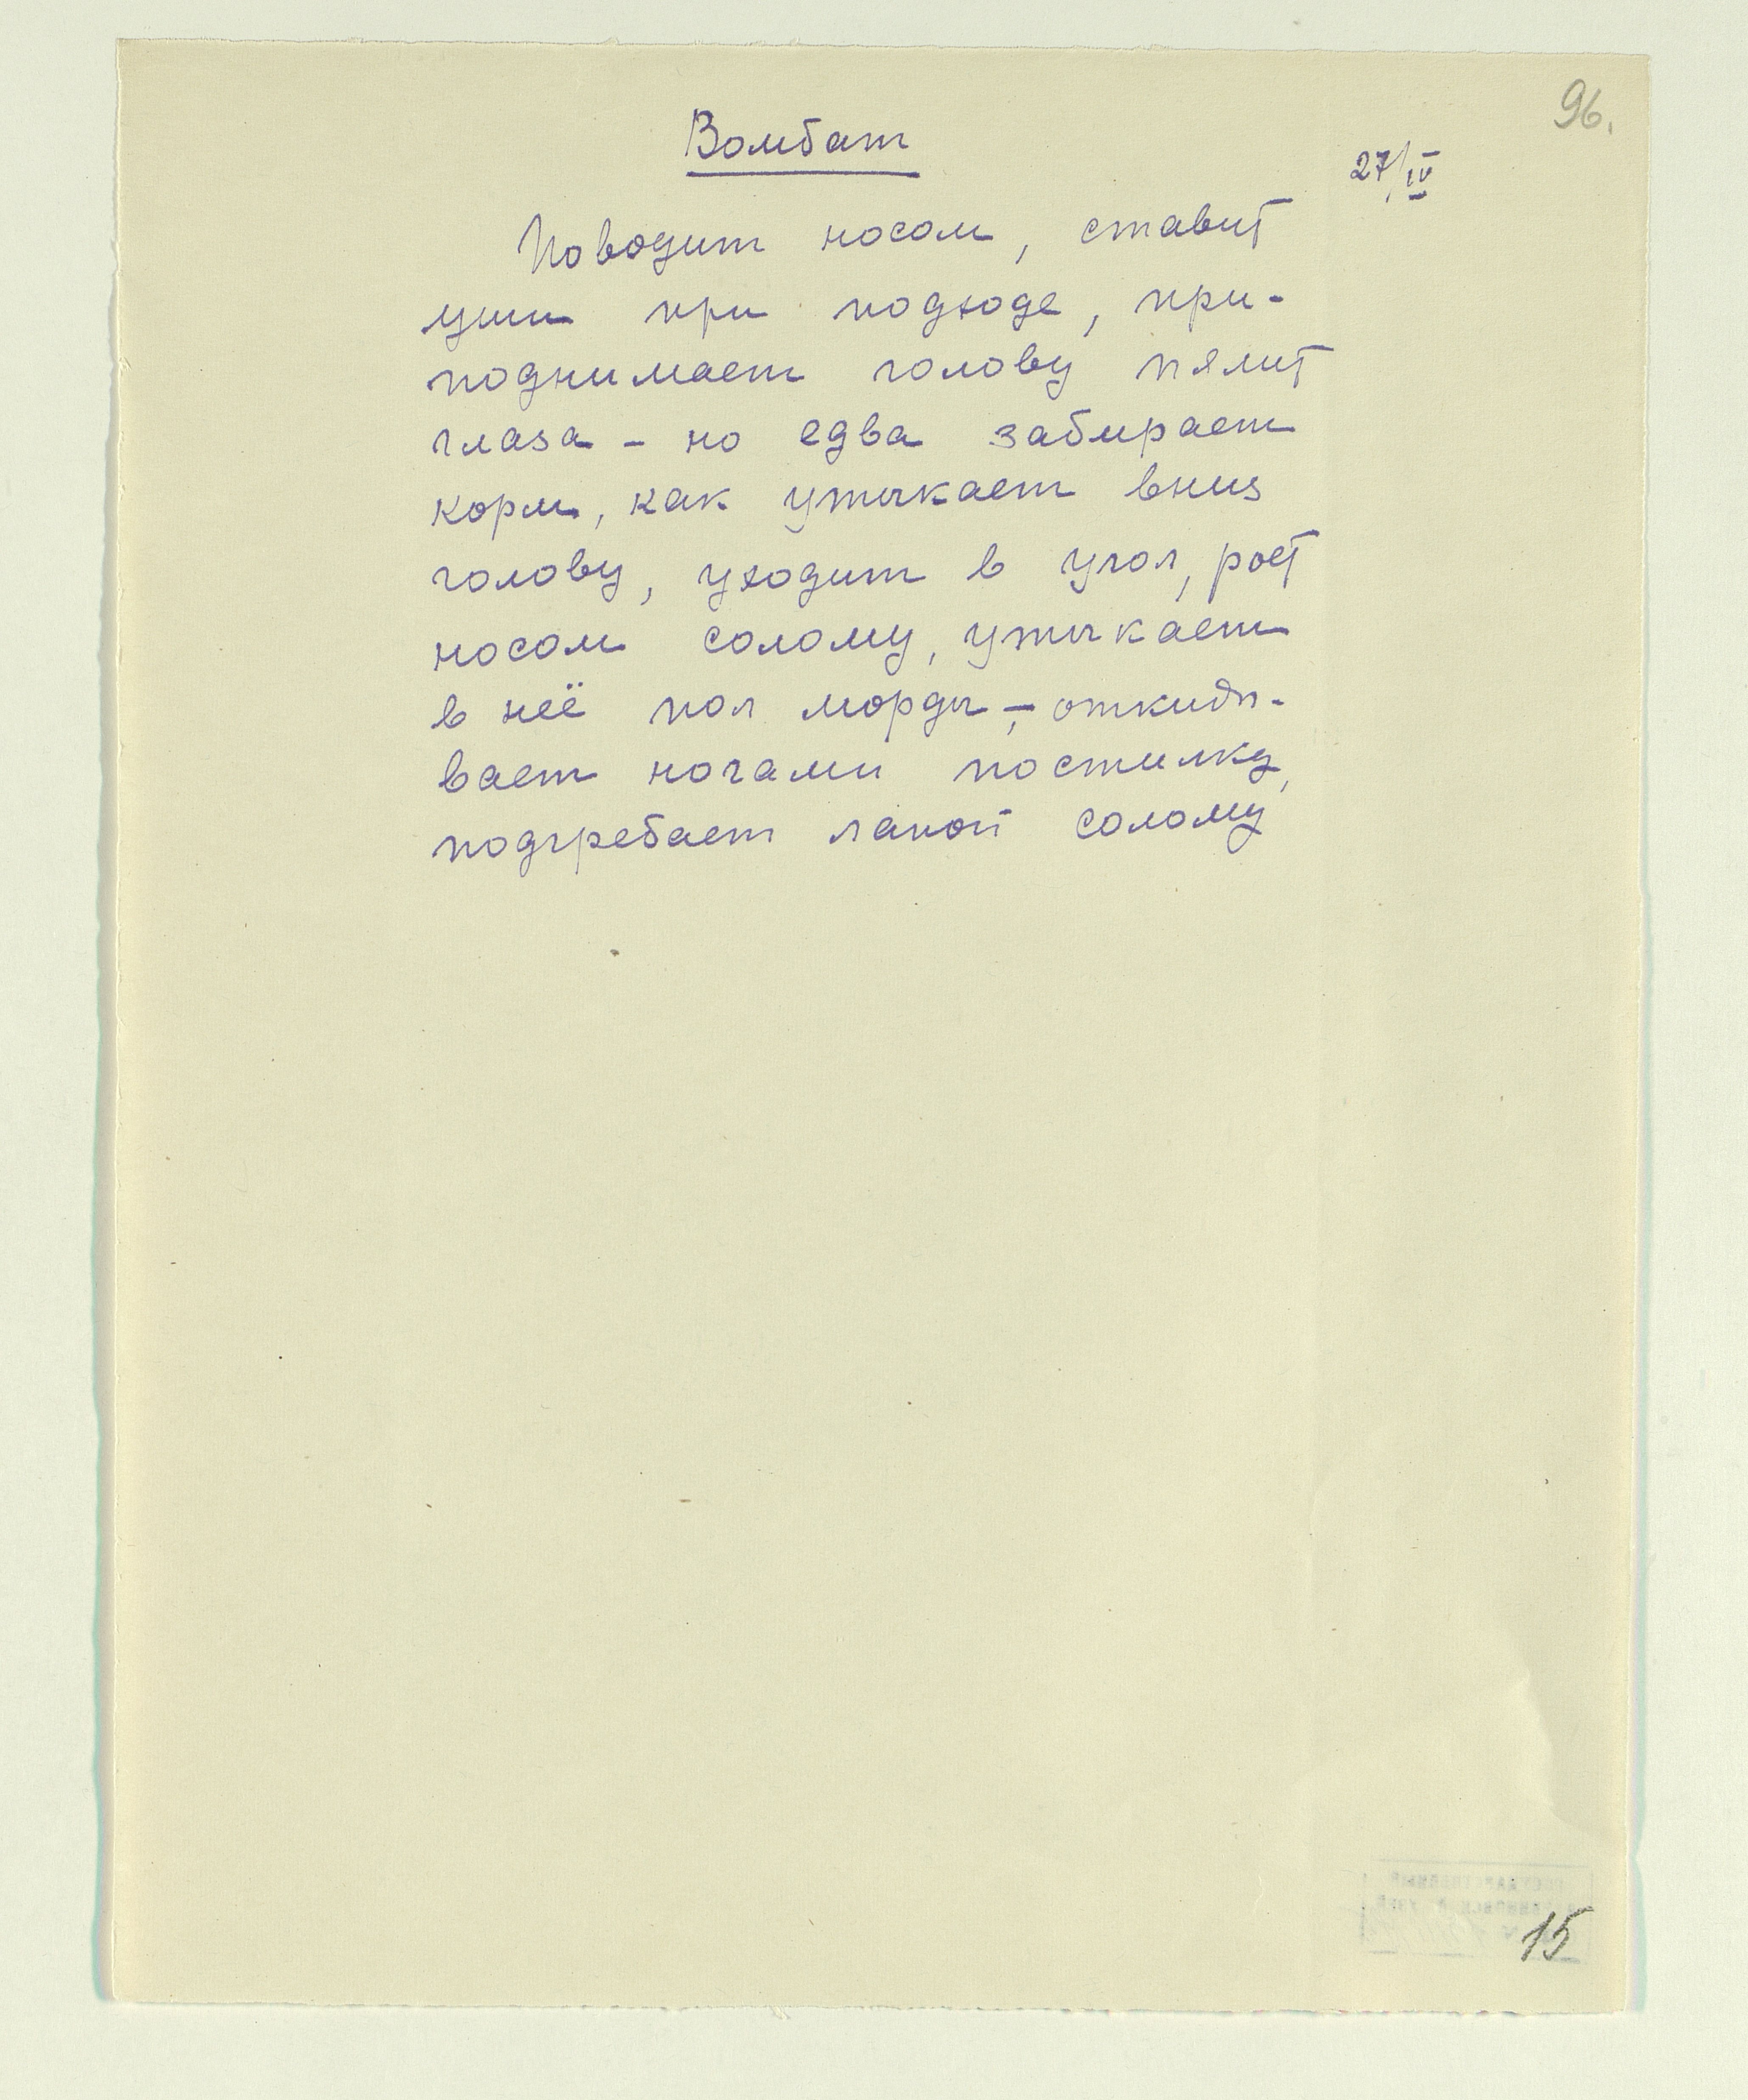 96.
Вомбат
27/IV
Поводит носом, ставит
уши при подходе, при-
поднимает голову пялит
глаза - но едва забирает
корм, как утыкает вниз
голову, уходит в угол, роет
носом солому, утыкает
в неё пол морды, - откиды-
вает ногами постилку,
подгребает лапой солому
15